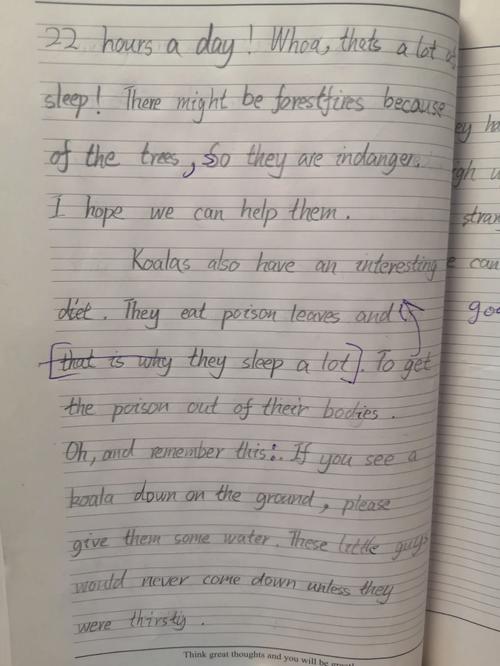 22 hours a day! Whoa, thats a lot of
sleep! There might be forestfires because
of the trees, So they are indanger.
I hope we can help them.
Koalas also have an interesting
diet. They eat poison leaves and
[that is why they sleep a lot]. To get
the poison out of their bodies.
Oh, and remember this:. If you see a
koala down on the ground, please
give them some water. These little guys
would never come down unless they
were thirsty.
Think great thoughts and you will be great!
ey ha
igh
stran
e can
goo